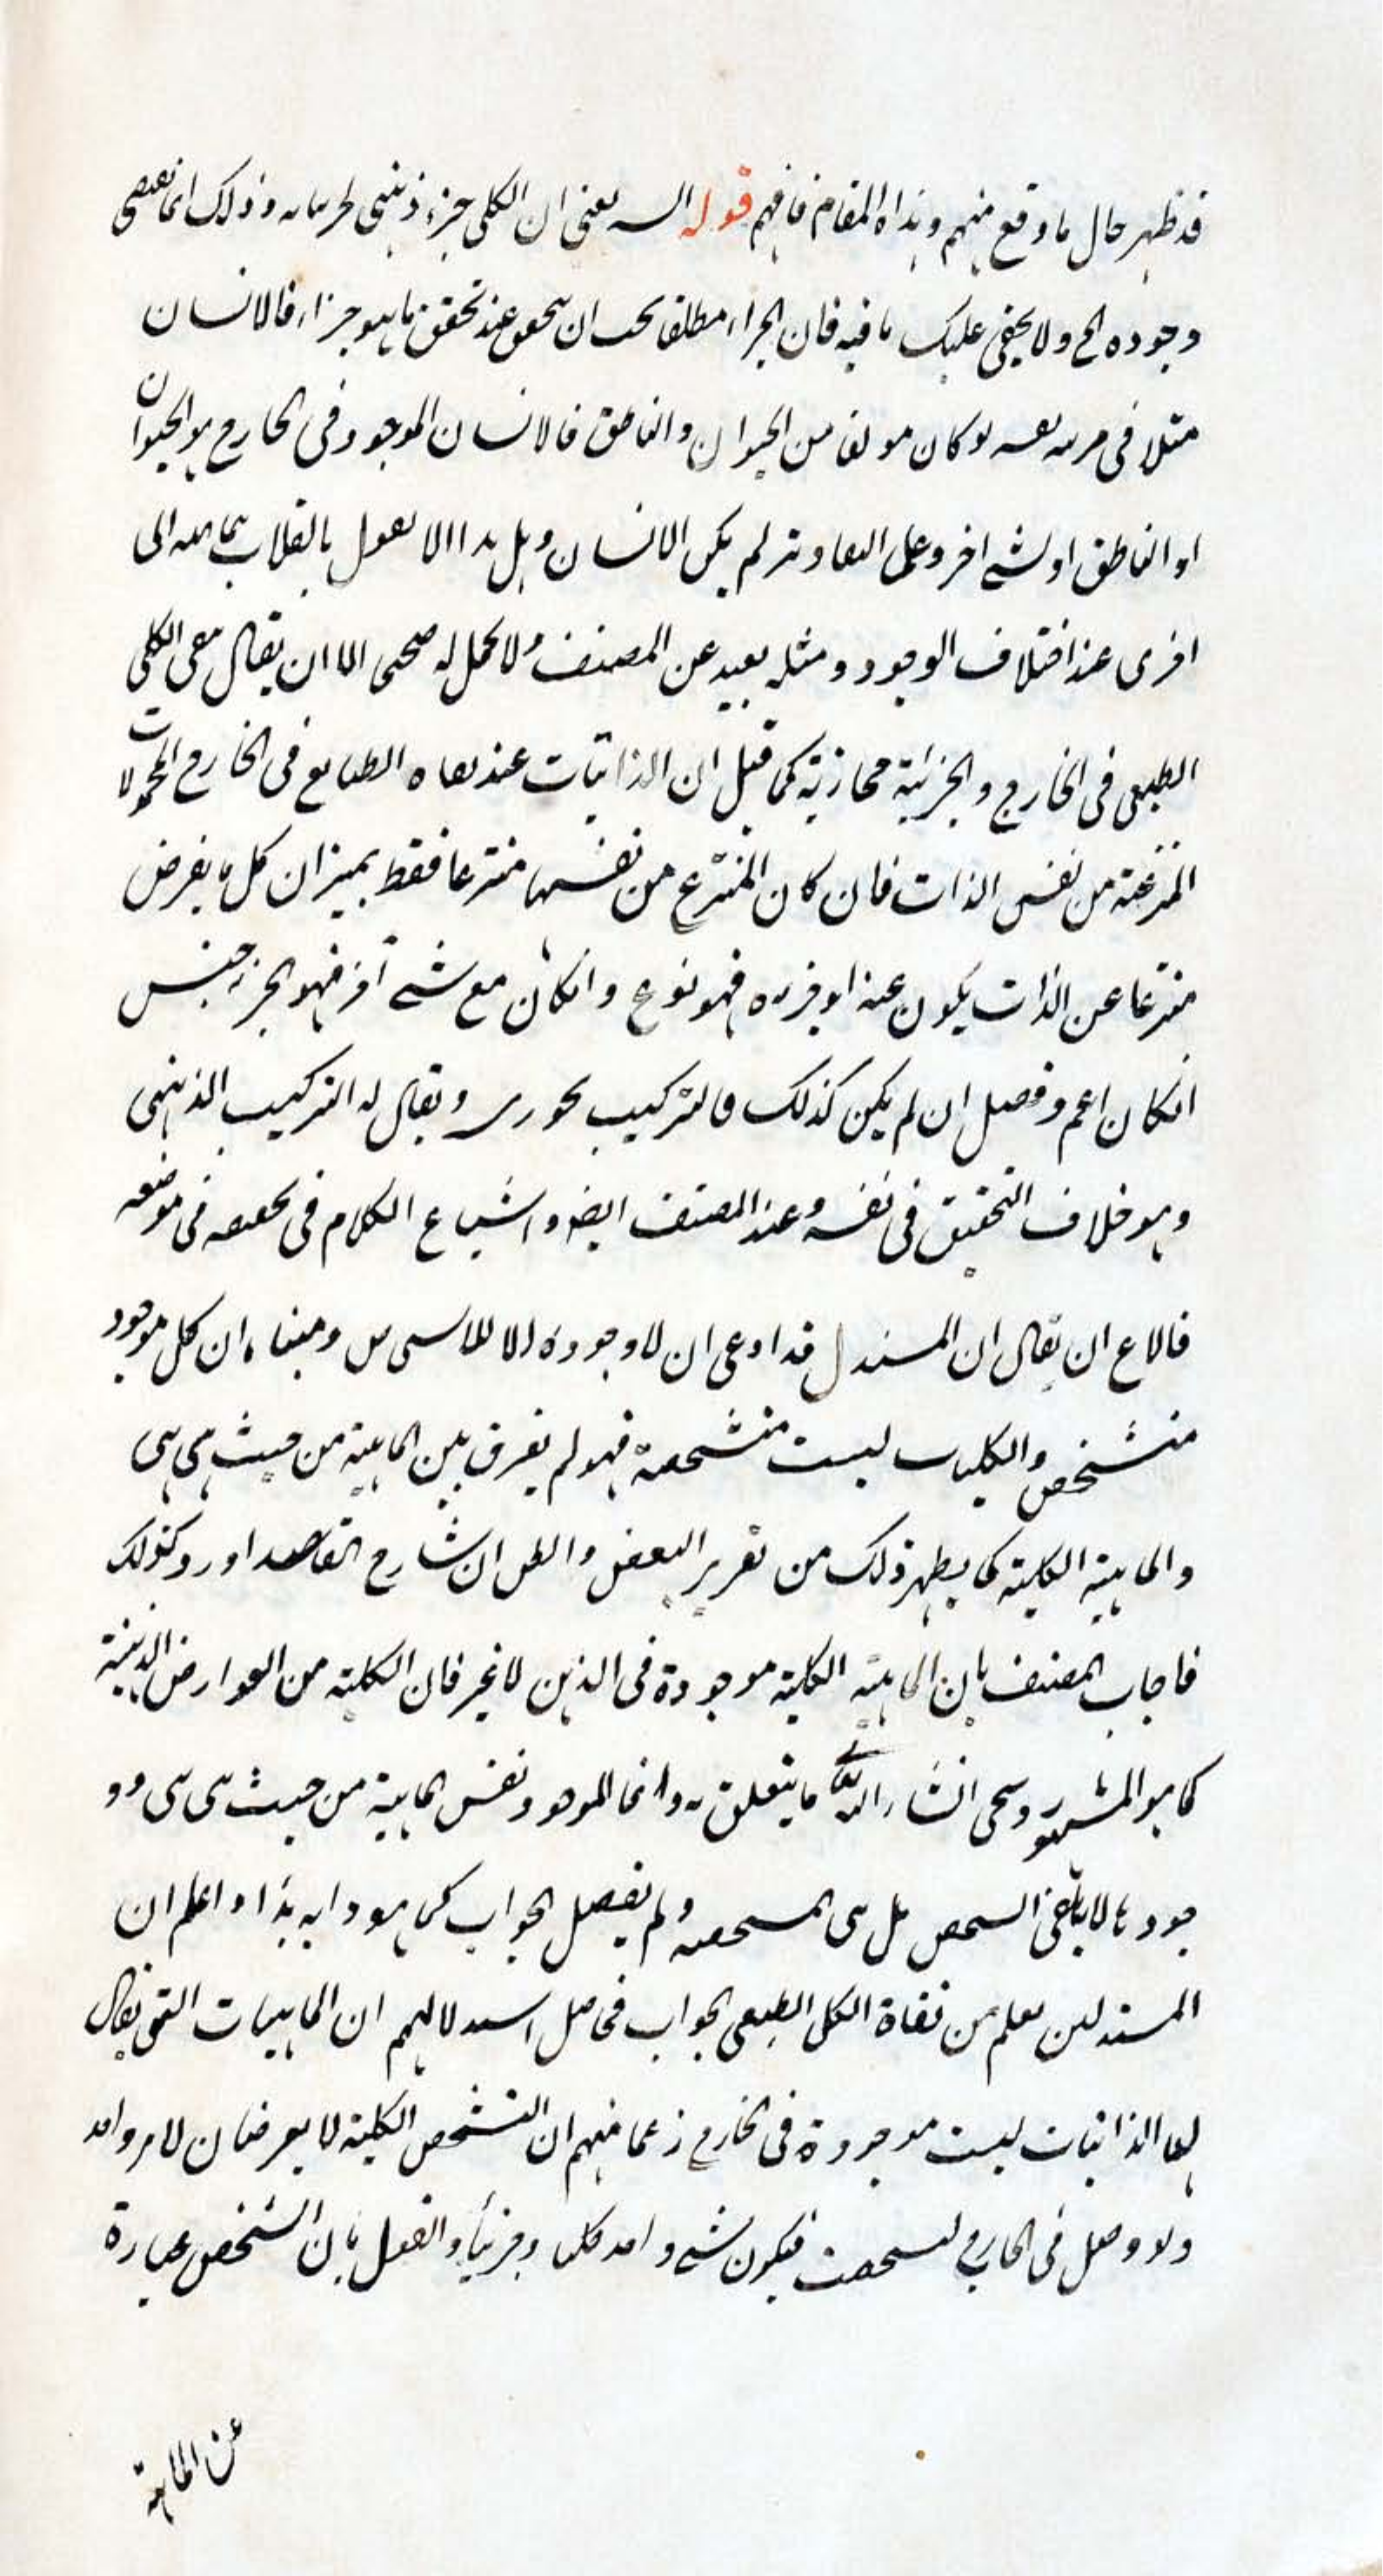 قد ظهر حال ما وقع منهم وبداه المقام فافهم قوله يعنى ان الكلى جزء ذهنى لجزئياته وذلك انما يقتضى
وجوده الخ ولا يخفى عليك ما فيه فان الجزء مطلقا يجب ان يتحقق عند تحقق ما هو جزء له فالانسان
مثلا فى مرتبة نفسه لو كان مؤلفا من الحيوان والناطق فالانسان الموجود فى الخارج هو الحيوان
او الناطق او شىء اخر وعلى التقادير لم يكن الانسان وهل هذا الا القول بانقلاب ماهية الى
اخرى عند اختلاف الوجود ومثله بعيد عن المصنف ولا محمل له صحيح الا ان يقال معنى الكلى
الطبيعى فى الخارج والجزئية مجازية كما قيل ان الذاتيات عند نفاة الطبايع فى الخارج المحمولات
المنتزعة من نفس الذات فان كان المنتزع من نفسها منتزعا فقط بميزان كل ما يفرض
منتزعا عن الذات يكون عنه او فرده فهو نوع وان كان مع شىء آخر فهو الجزء جنس
ان كان اعم وفصل ان لم يكن كذلك فالتركيب تجوزى ويقال له التركيب الذهنى
وهو خلاف التحقيق فى نفسه وعند المصنف ايضا واشباع الكلام فى تحقيقه فى موضعه
ان يقال ان المستدل قد ادعى ان لا وجود الا للاشخاص ومبناه ان كل موجود
متشخص والكليات ليست متشخصة فهو لم يفرق بين الماهية من حيث هى هى
والماهية الكلية كما يظهر ذلك من تقرير البعض والظاهر ان شارح المقاصد اورد كذلك
فاجاب المصنف بان الماهية الكلية موجودة فى الذهن لا غير فان الكلية من العوارض الذهنية
كما هو المشهور وسيجىء انشاء الله تعالى ما يتعلق به وانما الموجود نفس الماهية من حيث هى هى وو
جودها لا ينافى التشخص بل هى المتشخصة ولم يفصل الجواب كما هو دابه هذا واعلم ان
المستدلين معلم من نفاة الكلى الطبيعى الجواب فحاصل استدلالهم ان الماهيات التى يقال
لها الذاتيات ليست موجودة فى الخارج زعما منهم ان التشخص الكلية لا يعرضان لامر واحد
ولو وصل فى الخارج لتشخصت فيكون شىء واحد كليا وجزئيا والقول بان التشخص عبارة
عن الماهية